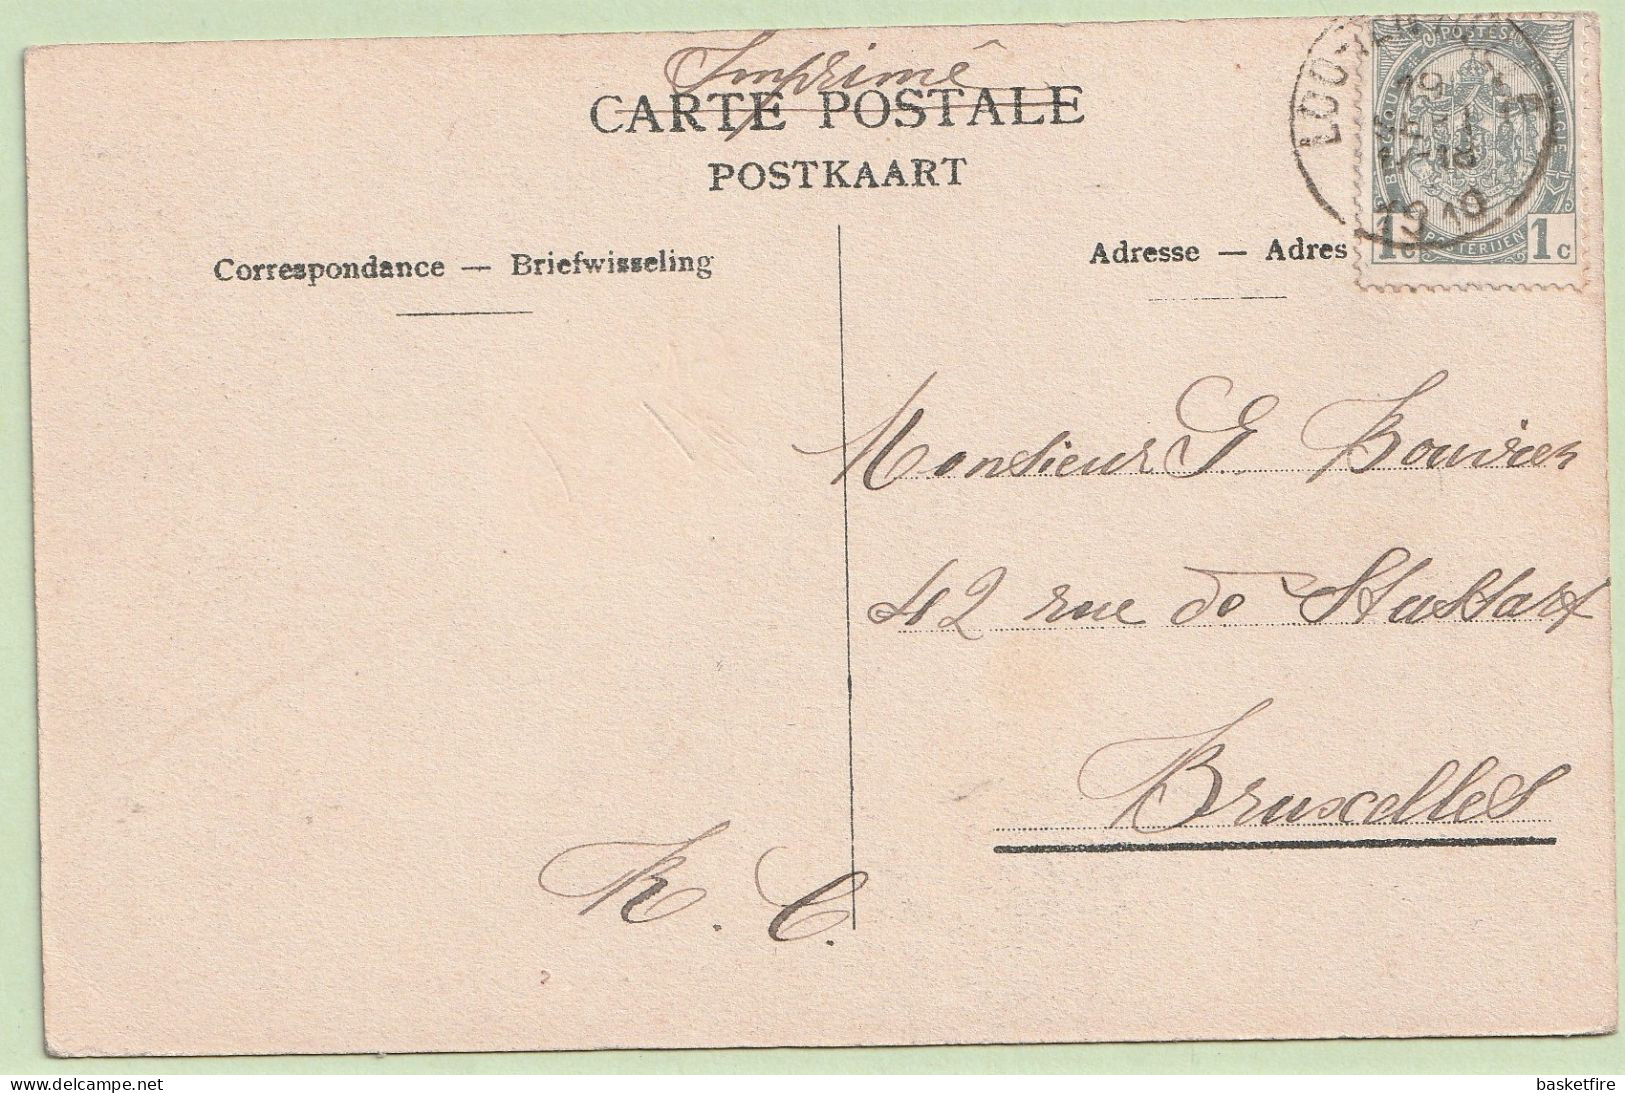 Imprimé
CARTE POSTALE
POSTKAART
Correspondance — Briefwisseling
Adresse — Adres
POSTES
BELGIQUE
BELGIE
POSTERIJEN
1c 1c
1910
Monsieur G. Bouvier
42 rue de Stassart
Bruxelles
K. C.
(C) www.delcampe.net
basketfire